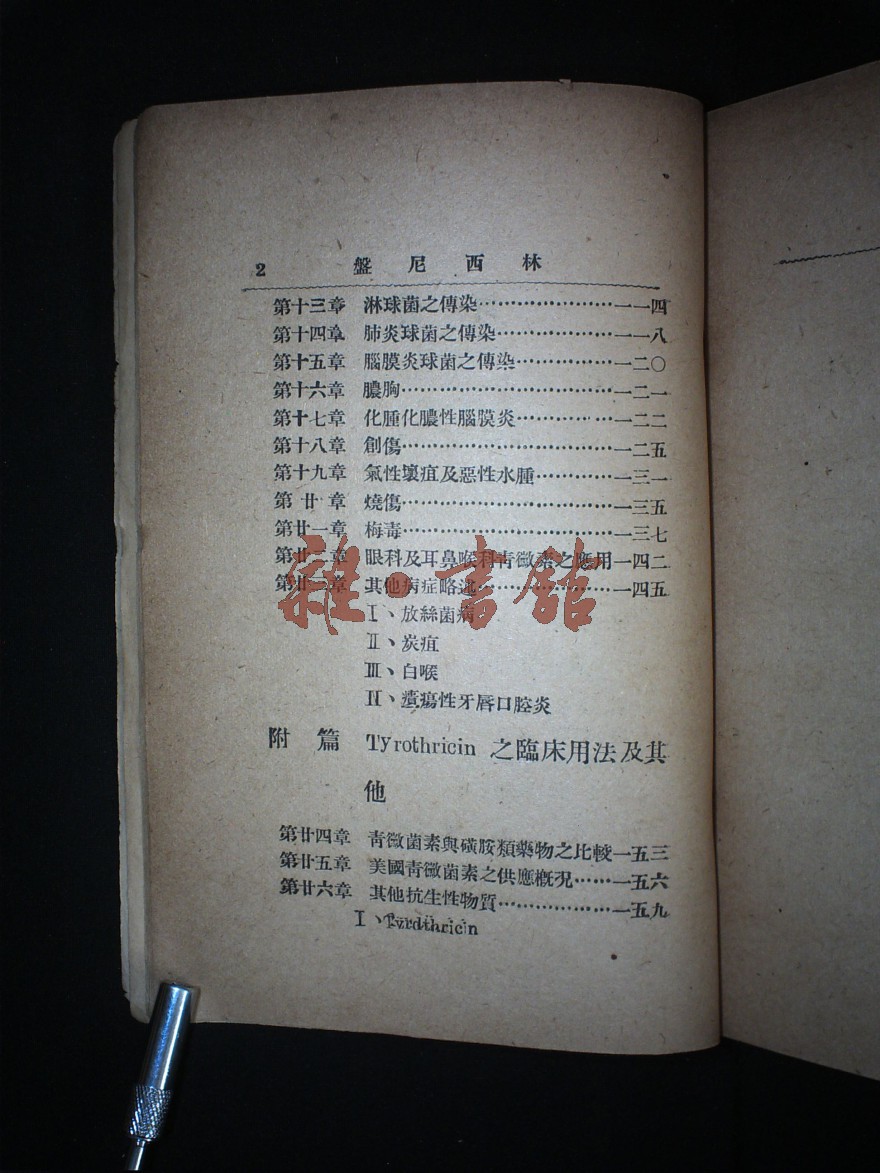 2 盤尼西林
第十三章 淋球菌之傳染……………………一一四
第十四章 肺炎球菌之傳染…………………一一八
第十五章 腦膜炎球菌之傳染………………一二〇
第十六章 膿胸………………………………一二一
第十七章 化腫化膿性腦膜炎………………一二二
第十八章 創傷………………………………一二五
第十九章 氣性壞疽及惡性水腫……………一三一
第廿章 燒傷………………………………一三五
第廿一章 梅毒………………………………一三七
第廿二章 眼科及耳鼻喉科青黴素之應用一四二
第廿三章 其他病症略述……………………一四五
I、放絲菌病
II、炭疽
III、白喉
IV、潰瘍性牙唇口腔炎
附篇 Tyrothricin 之臨床用法及其
他
第廿四章 青黴菌素與磺胺類藥物之比較一五三
第廿五章 美國青黴菌素之供應概況……一五六
第廿六章 其他抗生性物質………………一五九
I、Tyrothricin
雜·書館